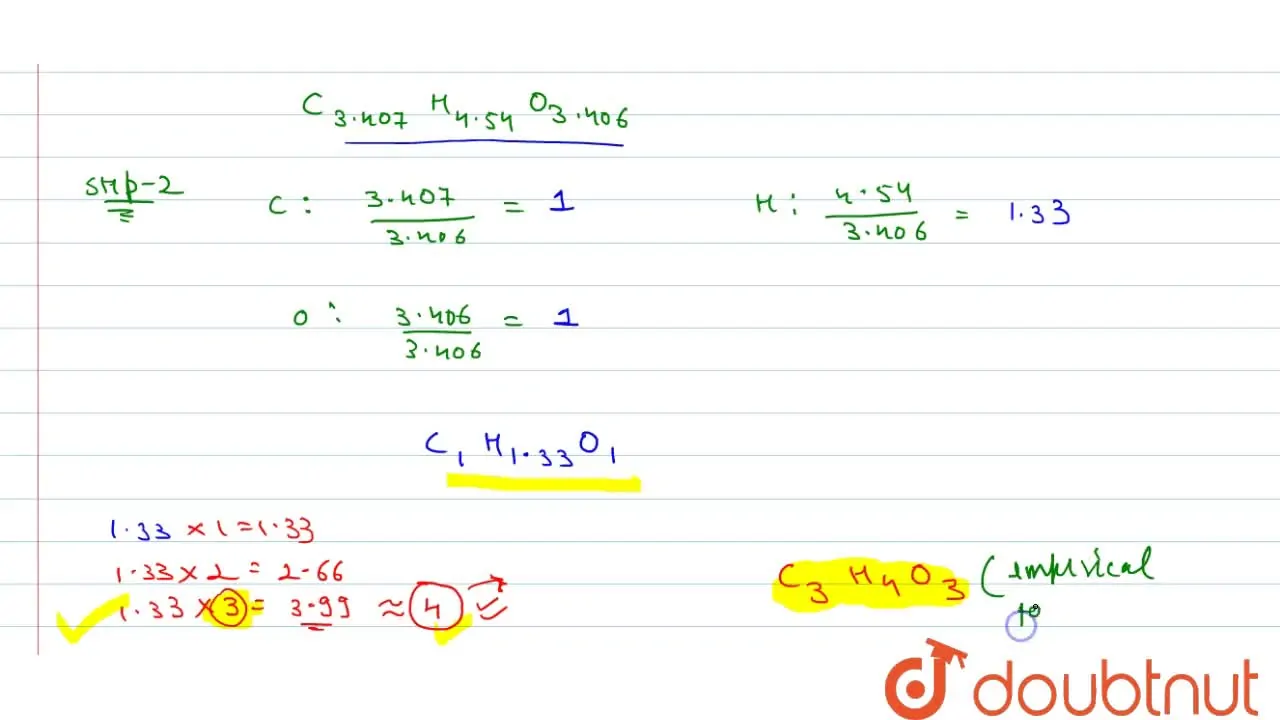 C3.407 H4.54 O3.406
Step-2
C : 3.407/3.406 = 1
H : 4.54/3.406 = 1.33
O : 3.406/3.406 = 1
C1 H1.33 O1
1.33 × 1 = 1.33
1.33 × 2 = 2.66
1.33 × 3 = 3.99 ≈ 4
C3 H4 O3 (empirical
fo
doubtnut